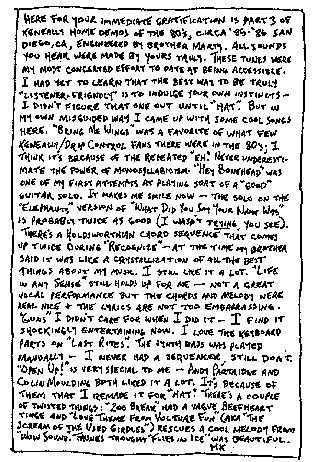 HERE FOR YOUR IMMEDIATE GRATIFICATION IS PART 3 OF
KENEALLY HOME DEMOS OF THE 80'S, CIRCA '85-'86 SAN
DIEGO, CA, ENGINEERED BY BROTHER MARTY. ALL SOUNDS
YOU HEAR WERE MADE BY YOURS TRULY. THESE TUNES WERE
MY MOST CONCERTED EFFORT TO DATE AT BEING ACCESSIBLE.
I HAD YET TO LEARN THAT THE BEST WAY TO BE TRULY
"LISTENER-FRIENDLY" IS TO INDULGE YOUR OWN INSTINCTS -
I DIDN'T FIGURE THAT ONE OUT UNTIL "HAT". BUT IN
MY OWN MISGUIDED WAY I CAME UP WITH SOME COOL SONGS
HERE. "BRING ME WINGS" WAS A FAVORITE OF WHAT FEW
KENEALLY/DROP CONTROL FANS THERE WERE IN THE 80'S; I
THINK IT'S BECAUSE OF THE REPEATED "EH." NEVER UNDERESTI-
MATE THE POWER OF MONOSYLLABICISM. "HEY BONEHEAD" WAS
ONE OF MY FIRST ATTEMPTS AT PLAYING SORT OF A "GOOD"
GUITAR SOLO. IT MAKES ME SMILE NOW - THE SOLO ON THE
"ELEPHANTY" VERSION OF "WHAT DID YOU SAY YOUR NAME WAS"
IS PROBABLY TWICE AS GOOD (I WASN'T TRYING, YOU SEE).
THERE'S A HOLDSWORTHIAN CHORD SEQUENCE THAT COMES
UP TWICE DURING "RECOGNIZE" - AT THE TIME MY BROTHER
SAID IT WAS LIKE A CRYSTALLIZATION OF ALL THE BEST
THINGS ABOUT MY MUSIC. I STILL LIKE IT A LOT. "LIFE
IN ANY SENSE" STILL HOLDS UP FOR ME - NOT A GREAT
VOCAL PERFORMANCE BUT THE CHORDS AND MELODY WERE
REAL NICE & THE LYRICS ARE NOT TOO EMBARRASSING.
"GUNS" I DIDN'T CARE FOR WHEN I DID IT - I FIND IT
SHOCKINGLY ENTERTAINING NOW. I LOVE THE KEYBOARD
PARTS ON "LAST RITES". THE SYNTH BASS WAS PLAYED
MANUALLY - I NEVER HAD A SEQUENCER, STILL DON'T.
"OPEN UP!" IS VERY SPECIAL TO ME - ANDY PARTRIDGE AND
COLIN MOULDING BOTH LIKED IT A LOT. IT'S BECAUSE OF
THEM THAT I REMADE IT FOR "HAT." THERE'S A COUPLE
OF TWISTED THINGS: "ZOO BREAK" HAD A VAGUE BEEFHEART
TINGE AND "LOVE THEME FROM VULTURE FUN (AKA "THE
SCREAM OF THE USED GIRDLES") RESCUES A COOL MELODY FROM
"WOW SOUND." THINGS THOUGH "FLIES IN ICE" WAS BEAUTIFUL.
MK